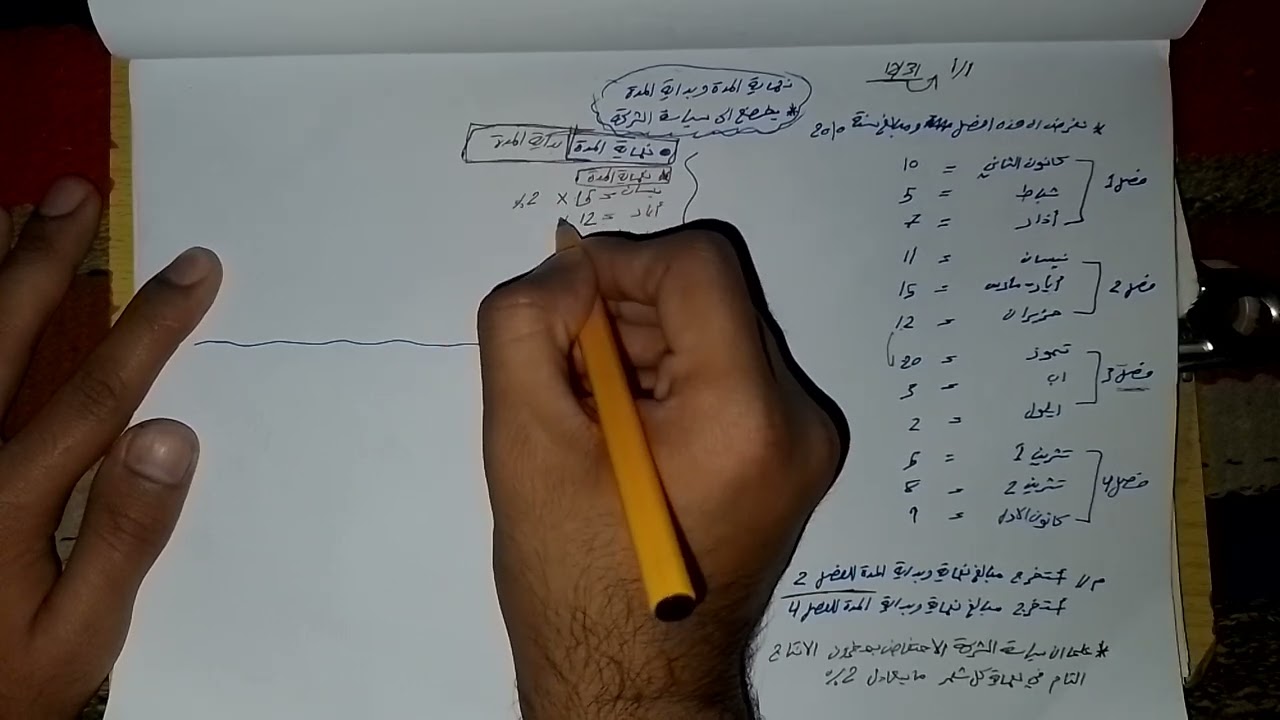 1/1 12/31
* نفرض ان هذه الفصل ومبالغ سنة 2010
فصل 1
كانون الثاني = 10
شباط = 5
أذار = 7
فصل 2
نيسان = 11
أيار - مايس = 15
حزيران = 12
فصل 3
تموز = 20
اب = 3
ايلول = 2
فصل 4
تشرين 1 = 6
تشرين 2 = 8
كانون الاول = 9
م1/ أستخرج مبالغ نهاية وبداية المدة للفصل 2
أستخرج مبالغ نهاية وبداية المدة للفصل 4
* علما ان سياسة الشركة الاحتفاظ بمخزون الانتاج
التام في نهاية كل شهر ما يعادل 2%
نهاية المدة وبداية المدة
* يخضع الى سياسة الشركة
نهاية المدة
بداية المدة
* نهاية المدة
نيسان = 15 × 2%
أيار = 12 ×